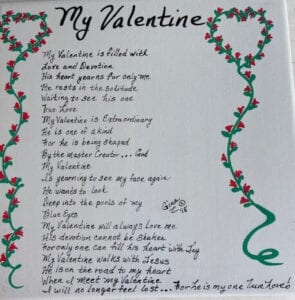 My Valentine
My Valentine is filled with
Love and Devotion
His heart yearns for only me
He rests in the solitude
Waiting to see his one
True Love
My Valentine is Extraordinary
He is one of a kind
For he is being shaped
By the Master Creator... God
My Valentine
Is yearning to see my face again
He wants to look
Deep into the pools of my
Blue Eyes
My Valentine will always Love me
His devotion cannot be Shaken
For only one can fill his heart with Joy
My Valentine walks with Jesus
He is on the road to my heart
When I meet my Valentine
I will no longer feel lost... For he is my one True Love
Gina